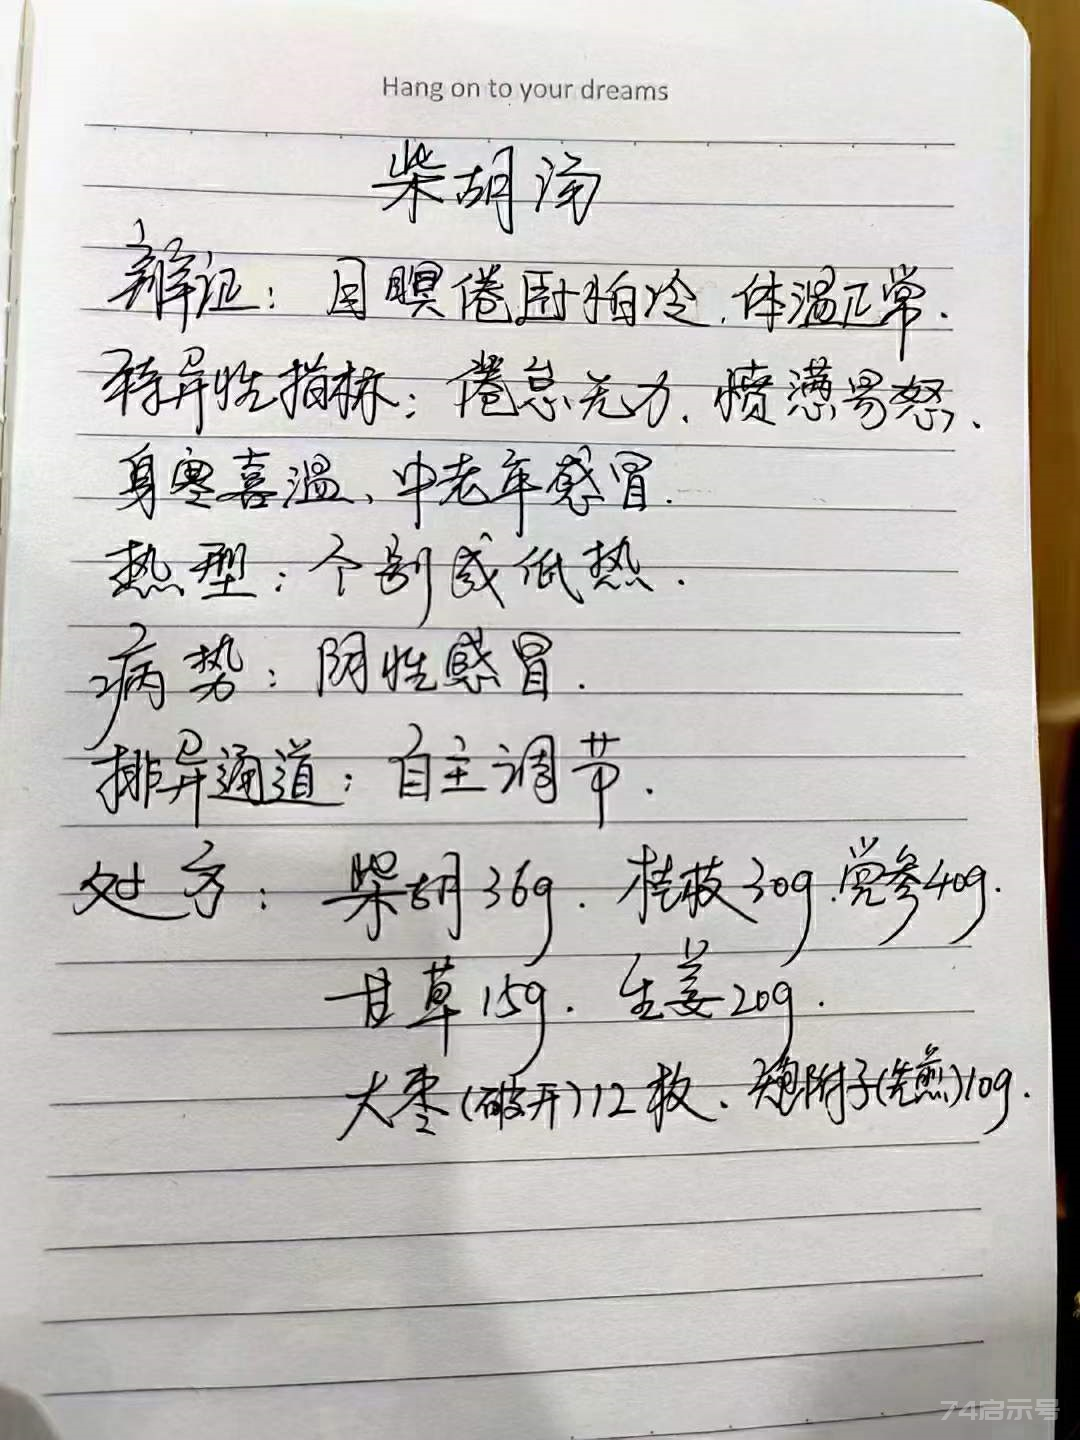 Hang on to your dreams
柴胡汤
辨证：目瞑倦卧怕冷、体温正常.
特异性指标：倦怠无力、愤懑易怒、
身寒喜温、中老年感冒.
热型：个别或低热.
病势：阴性感冒.
排异通道：自主调节.
处方：柴胡36g. 桂枝30g. 党参40g.
甘草15g. 生姜20g.
大枣(破开)12枚. 炮附子(先煎)10g.
74启示号